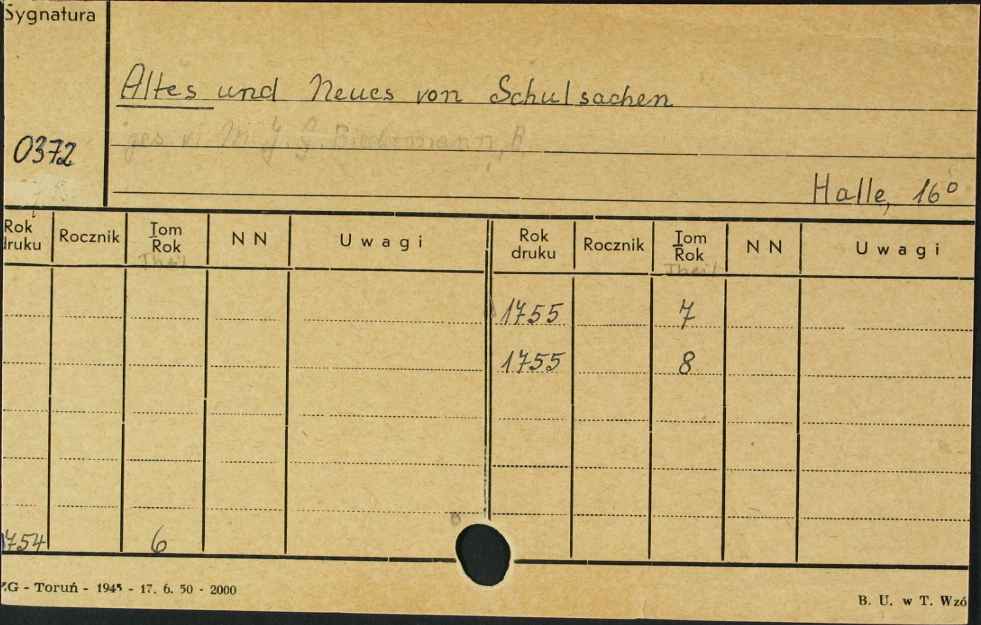 Sygnatura
Altes und Neues von Schulsachen
ges. v. M. J. G. Biedermann, R.
0372
Halle, 16°
Rok druku Rocznik Tom Rok Theil N N Uwagi Rok druku Rocznik Tom Rok Theil N N Uwagi
1755 7
1755 8
1754 6
ZG - Toruń - 1945 - 17. 6. 50 - 2000
B. U. w T. Wzó